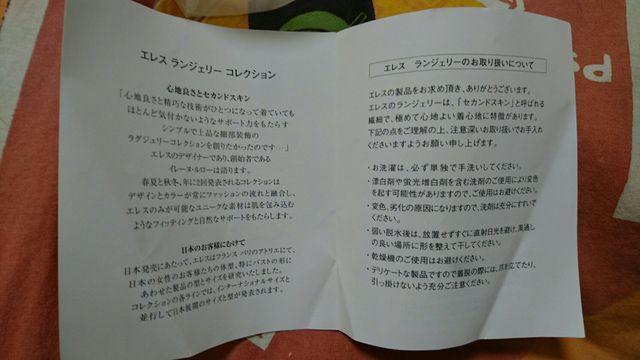 エレス ランジェリー コレクション
心地良さとセカンドスキン
「心地良さと精巧な技術がひとつになって着ていても
ほとんど気付かないようなサポート力をもたらす
シンプルで上品な細部装飾の
ラグジュリーコレクションを創りたかったのです…」
エレスのデザイナーであり、創始者である
イレーヌ・ルローは語ります。
春夏と秋冬、年に2回発表されるコレクションは
デザインとカラーが常にファッションの流れと融合し、
エレスのみが可能なユニークな素材は肌を包み込む
ようなフィッティングと自然なサポートをもたらします。
日本のお客様にむけて
日本発売にあたって、エレスはフランス パリのアトリエにて、
日本の女性のお客様たちの体型、特にバストの形に
あわせた製品の型とサイズを研究いたしました。
コレクションの各ラインでは、インターナショナルサイズと
並行して日本展開のサイズと型が発表されます。
エレス ランジェリーのお取り扱いについて
エレスの製品をお求め頂き、ありがとうございます。
エレスのランジェリーは、「セカンドスキン」と呼ばれる
繊細で、極めて心地よい着心地に特徴があります。
下記の点をご理解の上、注意深いお取り扱いでお手入れ
くださいますようお願い申し上げます。
・お洗濯は、必ず単独で手洗いしてください。
・漂白剤や蛍光増白剤を含む洗剤のご使用により変色
を起す可能性がありますので、ご使用はお避けください。
・変色、劣化の原因になりますので、洗剤は充分にすすい
でください。
・弱い脱水後は、放置せずすぐに直射日光を避け、風通し
の良い場所に形を整えて干してください。
・乾燥機のご使用はお避けください。
・デリケートな製品ですので着脱の際には、爪を立てたり、
引っ掛けないよう充分ご注意ください。